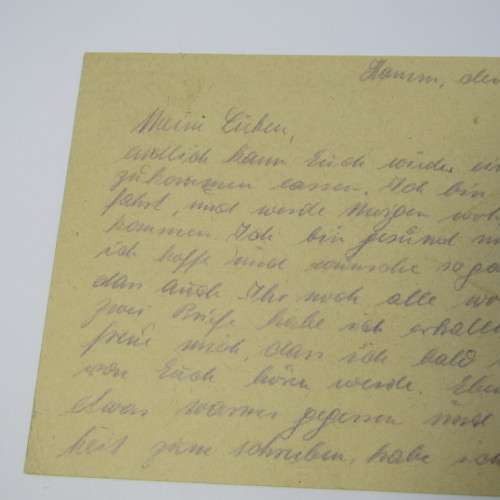 Hamm, den
Meine Lieben,
endlich kann Euch wieder ein
zukommen lassen. Ich bin
fahrt, und werde Morgen
kommen. Ich bin gesund
ich hoffe und wünsche
das auch Ihr noch alle
zwei Briefe habe ich
freue mich, das ich bald
von Euch hören werde. Eben
etwas warmes gegessen und
keit zum schreiben, habe ich